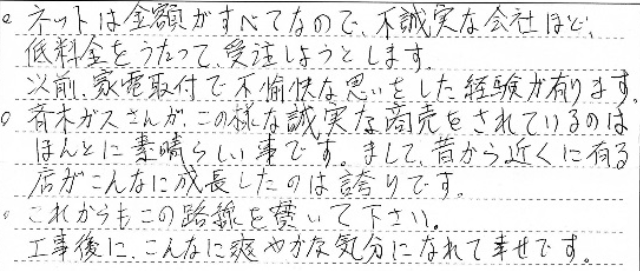 。ネットは金額がすべてなので、不誠実な会社ほど、
低料金をうたって、受注しようとします。
以前、家電取付で不愉快な思いをした経験が有ります。
。斉木ガスさんが、この様な誠実な商売をされているのは
ほんとに素晴らしい事です。まして、昔から近くに有る
店がこんなに成長したのは誇りです。
。これからもこの路線を貫いて下さい。
工事後に、こんなに爽やかな気分になれて幸せです。